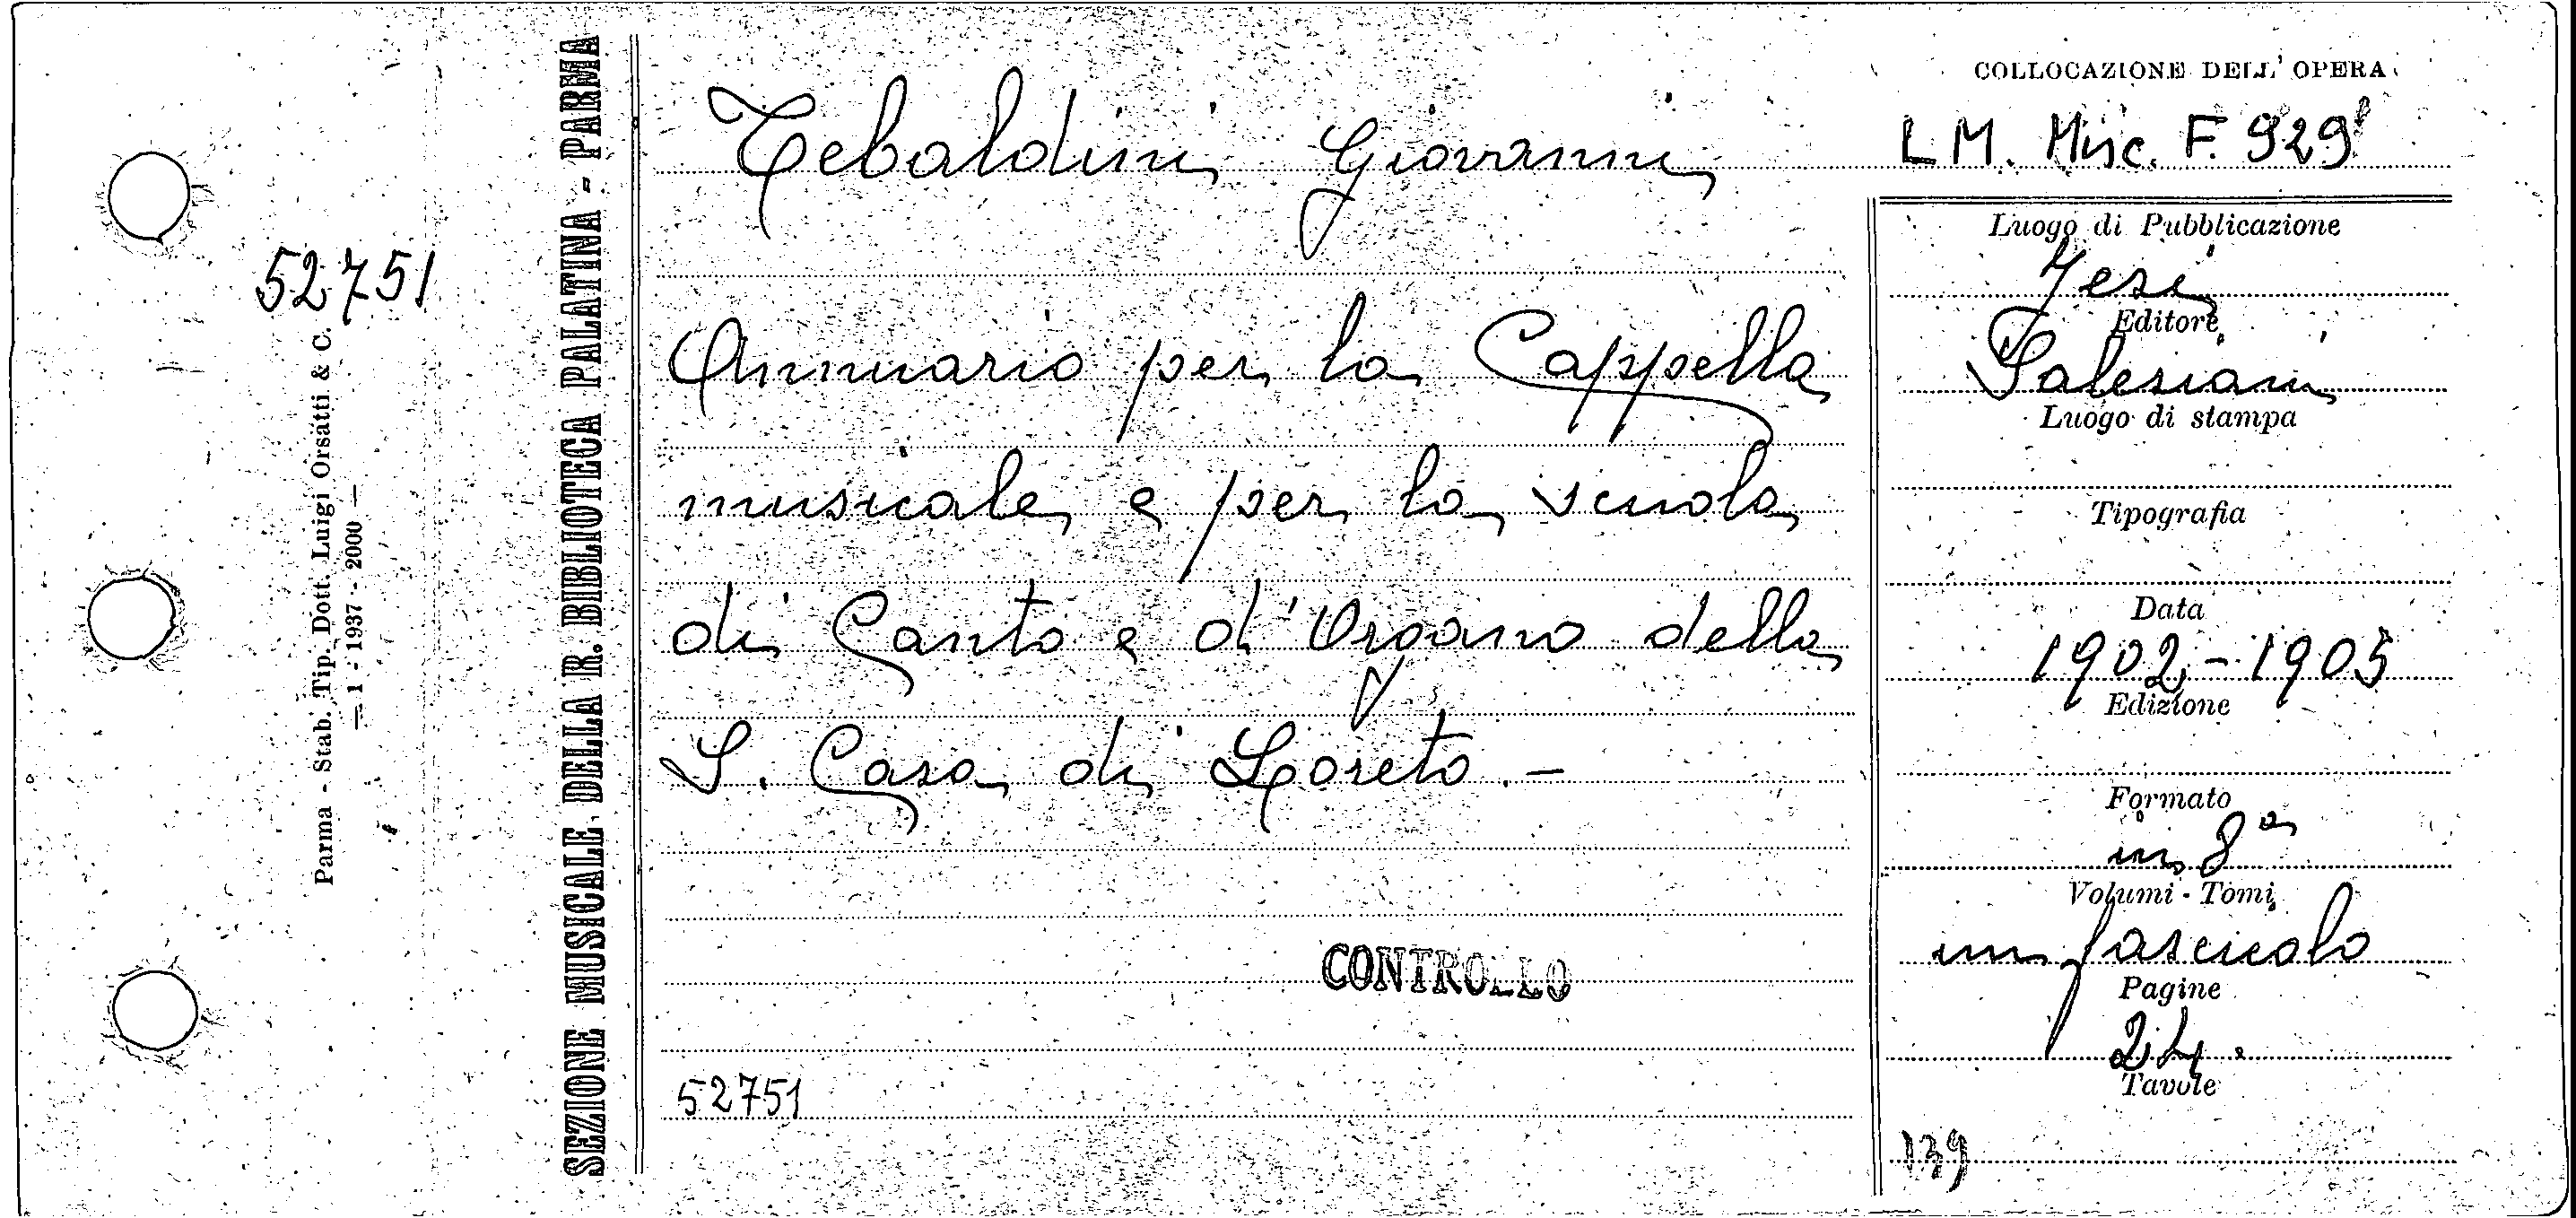 52751
Parma - Stab. Tip. Dott. Luigi Orsatti & C.
— 1 - 1937 - 2000 —
SEZIONE MUSICALE DELLA R. BIBLIOTECA PALATINA - PARMA
Tebaldini Giovanni
Annuario per la Cappella
musicale e per la scuola
di Canto e d'Organo della
S. Casa di Loreto. -
CONTROLLO
52751
COLLOCAZIONE DELL' OPERA
L M. Misc. F. 929
Luogo di Pubblicazione
Jesi
Editore
Salesiani
Luogo di stampa
Tipografia
Data
1902 - 1905
Edizione
Formato
in 8°
Volumi - Tomi
un fascicolo
Pagine
24.
Tavole
139